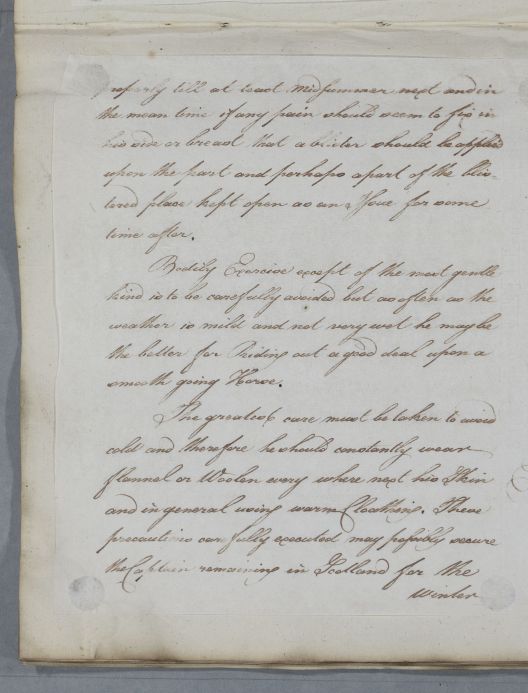 properly till at least Midsummer next and in
the mean time if any pain should seem to fix in
his side or breast that a blister should be applied
upon the part and perhaps a part of the blis-
tered place kept open as an Issue for some
time after.
Bodily Exercise except of the most gentle
kind is to be carefully avoided but as often as the
weather is mild and not very wet he may be
the better for Riding out a good deal upon a
smooth going Horse.
The greatest care must be taken to avoid
cold and therefore he should constantly wear
flannel or Woolen every where next his Skin
and in general using warm Cloathing. These
precautions carefully executed may possibly secure
the Captain remaining in Scotland for the
winter